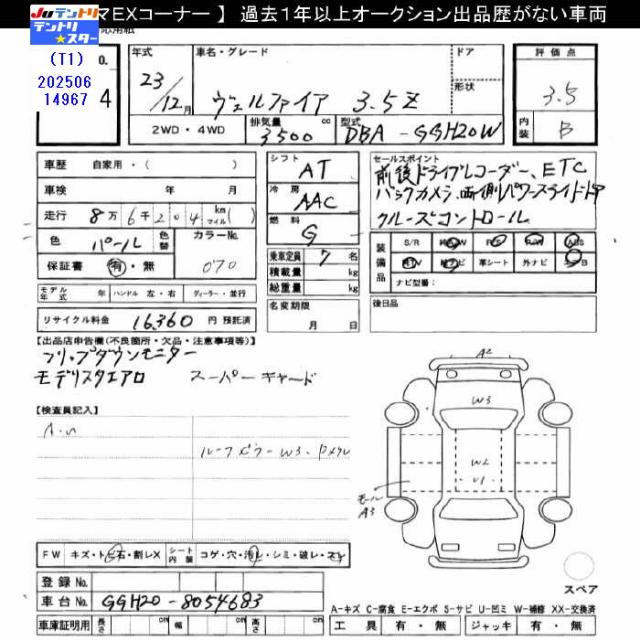 マEXコーナー 】 過去１年以上オークション出品歴がない車両
Juテントリ
テントリ★スター
応用紙
(T1)
202506
14967
o.
4
年式
23/12月
車名・グレード
ヴェルファイア 3.5Z
ドア
形状
評価点
3.5
内装
B
2WD・4WD
排気量
3500 cc
型式
DBA-GGH20W
車歴 自家用・( )
車検 年 月
走行 8万6千204 km マイル ( )
色 パール 色替 カラーNo. 070
保証書 有・無
シフト AT
冷房 AAC
燃料 G
乗車定員 7 名
積載量 kg
総重量 kg
セールスポイント
前後ドライブレコーダー、ETC
バックカメラ、両側パワースライドドア
クルーズコントロール
装備品
S/R PS P/W ABS
革シート 外ナビ
ナビ型番:
モデル年式 年 ハンドル 左・右 ディーラー・並行
名変期限
月 日
後日品
リサイクル料金 16360 円 預託済
【出品店申告欄(不良箇所・欠品・注意事項等)】
フリップダウンモニター
モデリスタエアロ スーパーキャード
【検査員記入】
A・U
ルーフピラーW3.
A2
W3
W2
U1
モール
A3
FW キズ・トビ石・割レX シート内装 コゲ・穴・汚レ・シミ・破レ・スレ
登録No.
車台No. GGH20-8054683
車庫証明用 長さ cm 幅 cm 高さ cm
スペア
A-キズ C-腐食 E-エクボ S-サビ U-凹ミ W-補修 XX-交換済
工具 有・無 ジャッキ 有・無